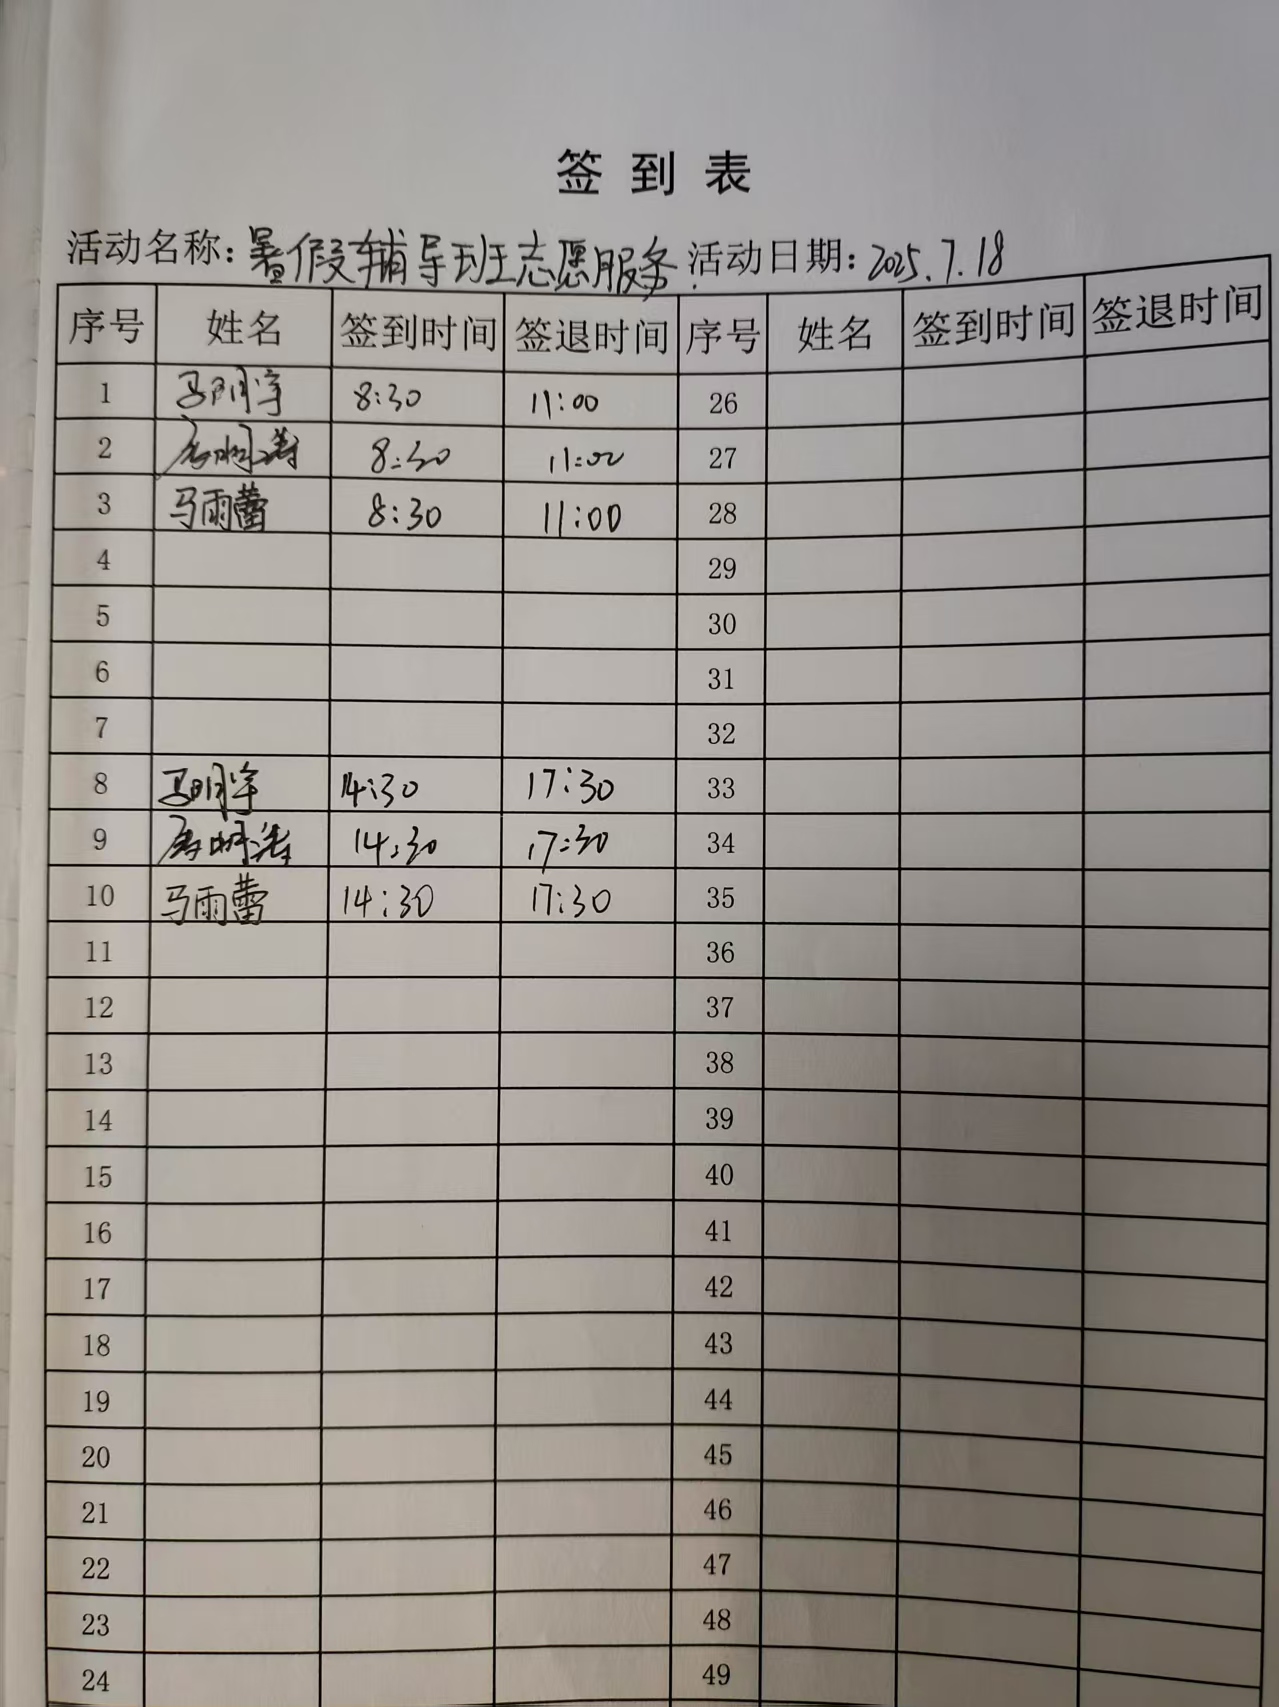 签到表
活动名称：暑假辅导班志愿服务 活动日期：2025.7.18
序号 姓名 签到时间 签退时间 序号 姓名 签到时间 签退时间
1 马明宇 8:30 11:00 26
2 8:30 11:00 27
3 马雨蕾 8:30 11:00 28
4 29
5 30
6 31
7 32
8 马明宇 14:30 17:30 33
9 14:30 17:30 34
10 马雨蕾 14:30 17:30 35
11 36
12 37
13 38
14 39
15 40
16 41
17 42
18 43
19 44
20 45
21 46
22 47
23 48
24 49